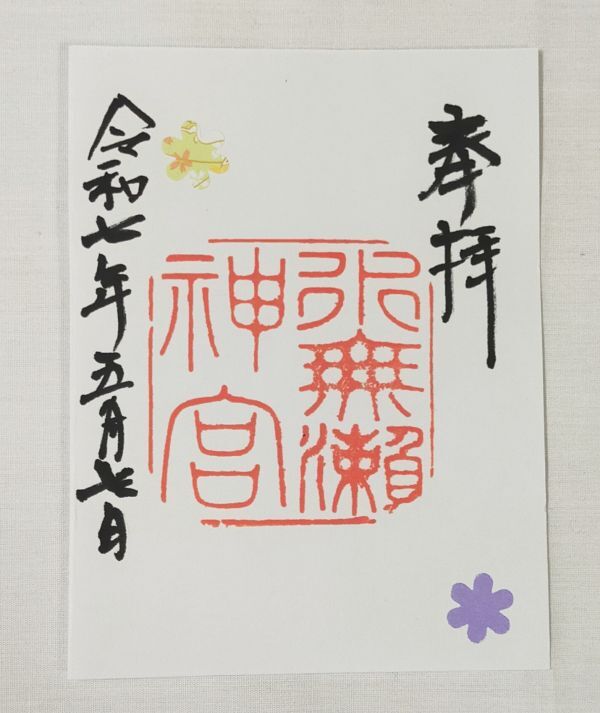 奉拝
水無瀬
神宮
令和七年五月七日